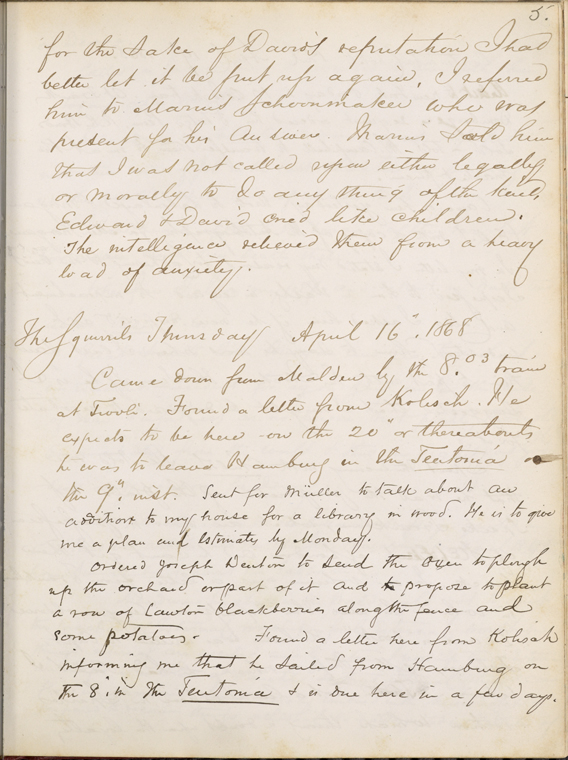 5.
for the sake of David's reputation I had
better let it be put up again, I referred
him to Marius Schoonmaker who was
present for his answer. Marius told him
that I was not called upon either legally
or morally to do any thing of the kind,
Edward & David cried like children.
The intelligence relieved them from a heavy
load of anxiety.
The Squirrils Thursday April 16", 1868
Came down from Malden by the 8.03 train
at Tivoli. Found a letter from Kolisch. He
expects to be here on the 20" or thereabouts
he was to leave Hamburg in the Teutonia on
the 9". inst. Sent for Müller to talk about an
addition to my house for a library in wood. He is to give
me a plan and estimates by Monday.
Ordered Joseph Denton to send the oxen to plough
up the orchard or part of it and propose to plant
a row of Lawton blackberries along the fence and
some potatoes. Found a letter here from Kolisch
informing me that he sailed from Hamburg on
the 8" in the Teutonia & is due here in a few days.